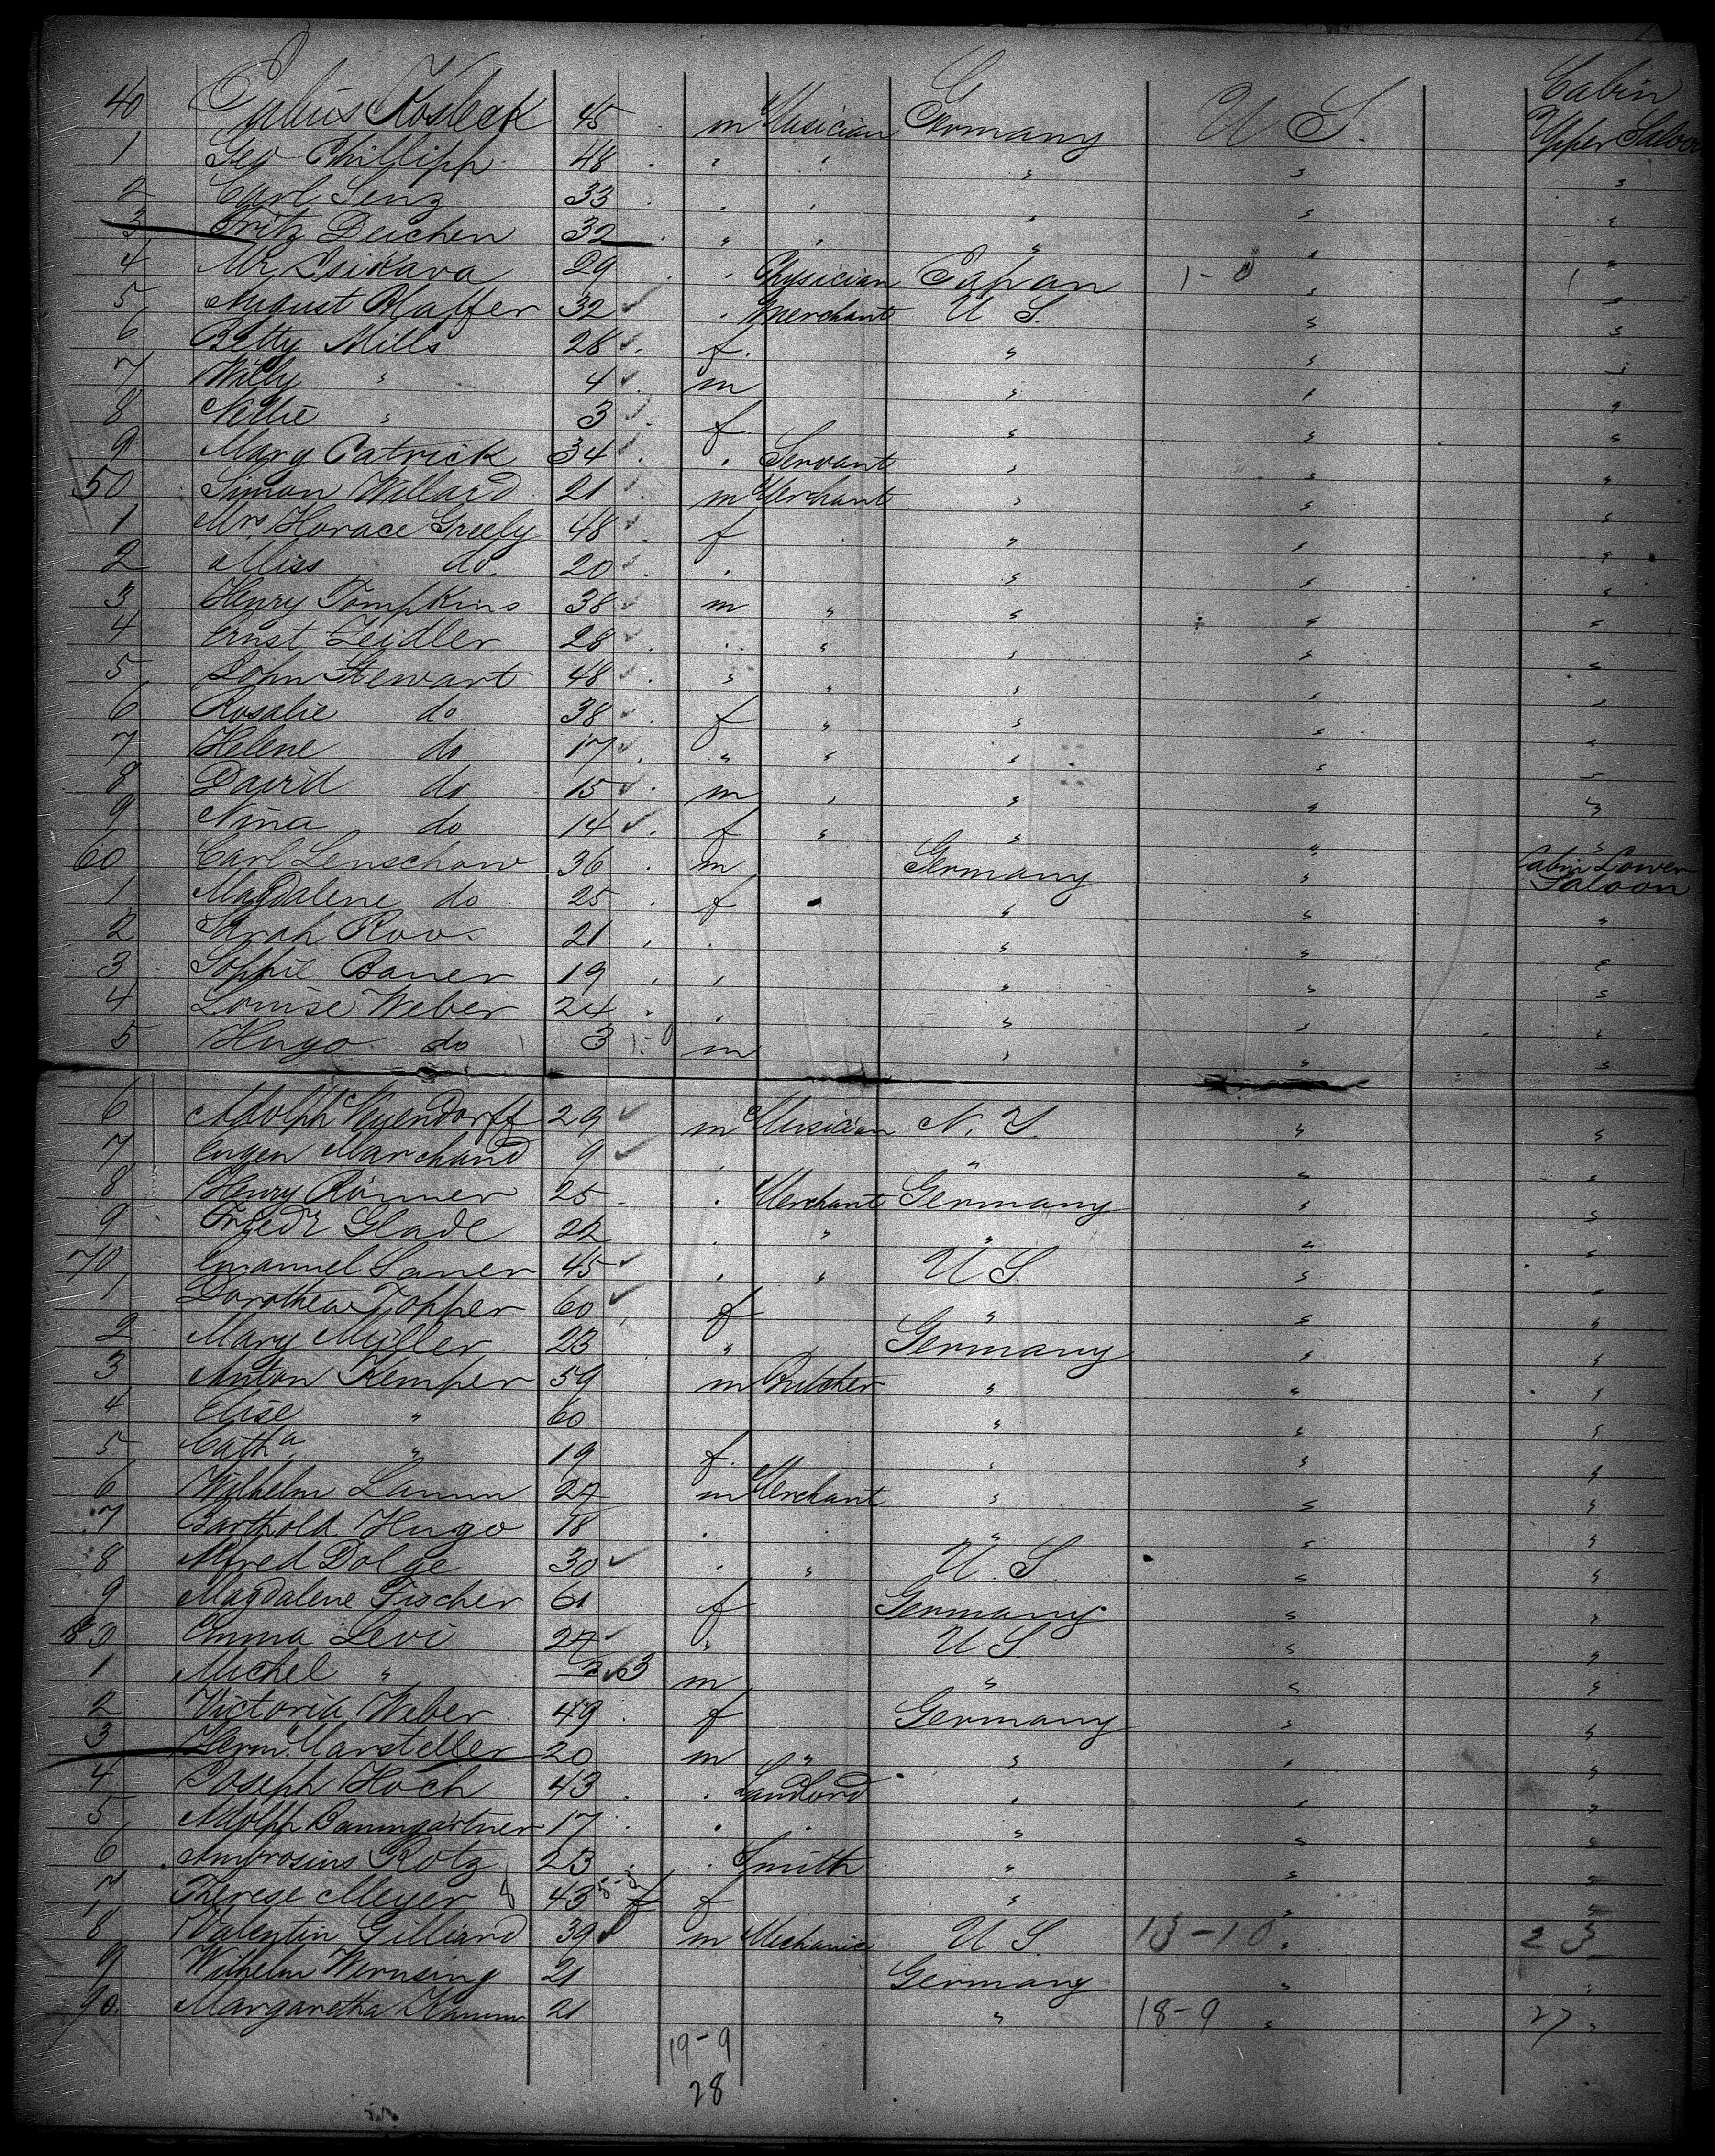 Cabin
40 Julius Kosleck 45 m Musician Germany U S. Upper Saloon
1 Geo Phillipp 48 " " " " "
2 Carl Senz 33 " " " " "
3 Fritz Deichen 32 " " " " "
4 Mr Isikava 29 " Physician Japan 1-0 "
5 August Blaffer 32 " Merchant U S. " "
6 Betty Mills 28 f. " " "
7 Willy " 4 m " " "
8 Nellie " 3 f " " "
9 Mary Patrick 34 " Servant " " "
50 Simon Willard 21 m Merchant " " "
1 Mrs Horace Greely 48 f " " "
2 Miss do. 20 " " " "
3 Henry Tompkins 38 m " " " "
4 Ernst Zeidler 28 " " " " "
5 John Stewart 48 " " " " "
6 Rosalie do. 38 f " " " "
7 Helene do 17 " " " " "
8 David do 15 m " " " "
9 Nina do 14 f " " " "
60 Carl Lenschow 36 m Germany " Cabin Lower Saloon
1 Magdalene do 25 f " " "
2 Sarah Roos 21 " " " "
3 Sophie Bauer 19 " " " "
4 Louise Weber 24 " " " "
5 Hugo do 3 1-0 m " " "
6 Adolph Neuendorff 29 m Musician N. Y. " "
7 Eugen Marchand 9 " " " "
8 Henry Rönner 25 " Merchant Germany " "
9 Friedr Glade 22 " " " " "
70 Emanuel Saner 45 " " U S. " "
1 Dorothea Topper 60 f " " "
2 Mary Müller 23 " Germany " "
3 Anton Kemper 59 m Butcher " " "
4 Elise " 60 " " "
5 Catha " 19 f. " " "
6 Wilhelm Lamm 27 m Merchant " " "
7 Barthold Hugo 18 " " " " "
8 Alfred Dolge 30 " " U. S. " "
9 Magdalene Fischer 61 f Germany " "
80 Emma Levi 27 " U S. " "
1 Michel " 3 m " " "
2 Victoria Weber 49 f Germany " "
3 Herm. Marsteller 20 m " " " "
4 Joseph Hoch 43 " Landlord " " "
5 Adolph Baumgartner 17 " " " " "
6 Ambrosius Rotz 23 " Smith " " "
7 Therese Meyer 43 f f " " "
8 Valentin Gilliard 39 m Mechanic U S. 13-10 " 23
9 Wilhelm Wernsing 21 Germany " "
90. Margaretha Hamm 21 " 18-9 " 27 "
19-9
28